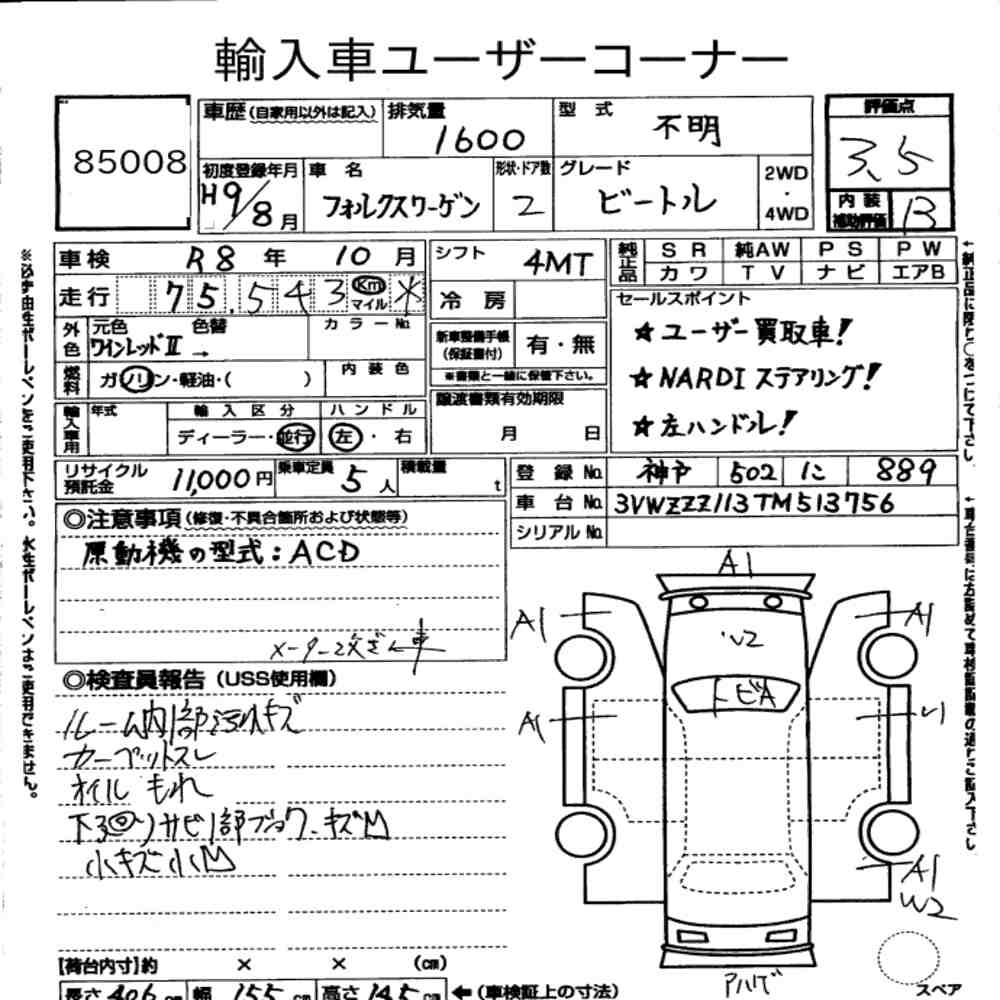 輸入車ユーザーコーナー
85008
車歴(自家用以外は記入)
排気量
1600
型 式
不明
評価点
3.5
初度登録年月
H9/8月
車 名
フォルクスワーゲン
形状・ドア数
2
グレード
ビートル
2WD
・
4WD
内装
補助評価
B
車検 R8 年 10 月
シフト
4MT
純正品
SR 純AW PS PW
カワ TV ナビ エアB
走行 75,543 km マイル ✳
冷房
セールスポイント
外色
元色 色替
ワインレッドⅡ →
カラーNo.
新車整備手帳
(保証書付)
有・無
※書類と一緒に保管下さい。
★ユーザー買取車!
★NARDIステアリング!
★左ハンドル!
燃料
ガソリン・軽油・( )
内装色
譲渡書類有効期限
月 日
輸入車用
年式
輸入区分
ディーラー・並行
ハンドル
左・右
リサイクル
預託金
11,000円
乗車定員
5人
積載量
t
登録No. 神戸 502 に 889
車台No. 3VWZZZ113TM513756
シリアルNo.
◎注意事項(修復・不具合箇所および状態等)
原動機の型式:ACD
メーター改ざん車
◎検査員報告(USS使用欄)
ルーム内部汚れキズ
カーペットスレ
オイルもれ
下回りサビ
小キズ小凹
A1
A1
A1
W2
トビA
A1
A1
W2
アハゲ
スペア
[荷台内寸]約 × × (cm)
長さ 406 cm 幅 155 cm 高さ 145 cm ←(車検証上の寸法)
※必ず油性ボールペンをご使用下さい。水性ボールペンはご使用できません。